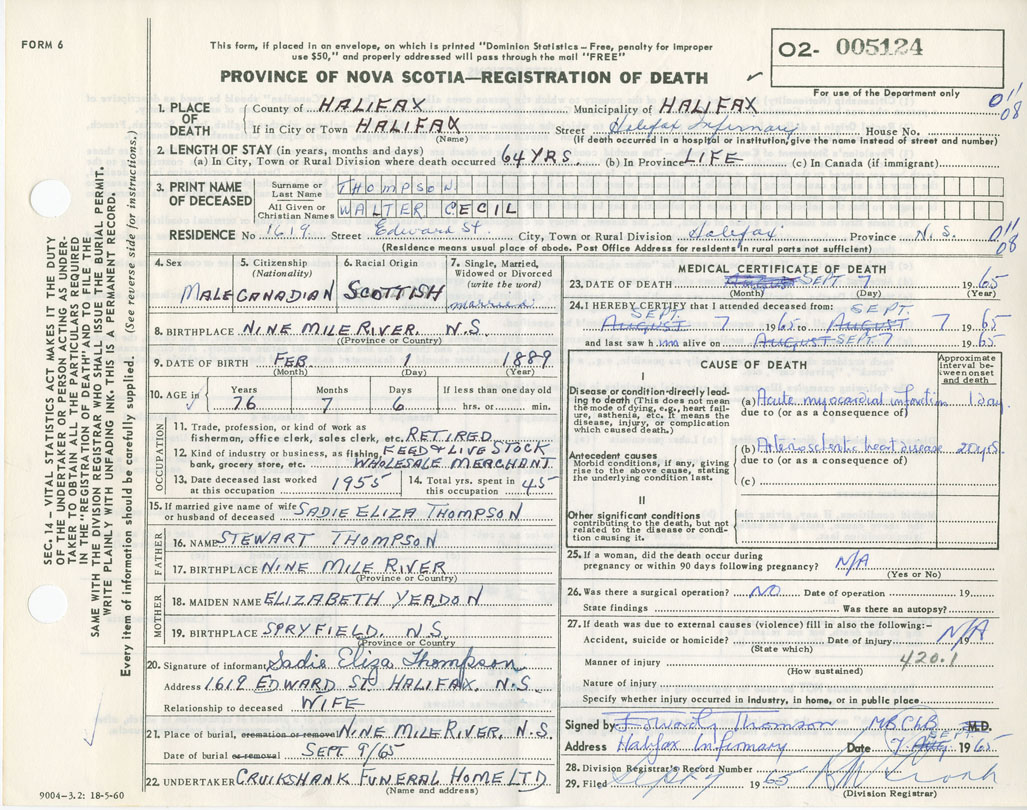 FORM 6
This form, if placed in an envelope, on which is printed "Dominion Statistics – Free, penalty for improper
use $50," and properly addressed will pass through the mail "FREE"
O2- 005124
PROVINCE OF NOVA SCOTIA—REGISTRATION OF DEATH
For use of the Department only
1. PLACE OF DEATH
County of HALIFAX Municipality of HALIFAX
If in City or Town HALIFAX Street Halifax Infirmary House No.
(Name) (If death occurred in a hospital or institution, give the name instead of street and number)
011
08
2. LENGTH OF STAY (in years, months and days)
(a) In City, Town or Rural Division where death occurred 64 YRS (b) In Province LIFE (c) In Canada (if immigrant)
3. PRINT NAME OF DECEASED
Surname or Last Name THOMPSON
All Given or Christian Names WALTER CECIL
RESIDENCE No 1619 Street Edward St. City, Town or Rural Division Halifax Province N.S.
(Residence means usual place of abode. Post Office Address for residents in rural parts not sufficient)
011
08
4. Sex MALE
5. Citizenship (Nationality) CANADIAN
6. Racial Origin SCOTTISH
7. Single, Married, Widowed or Divorced (write the word) married
8. BIRTHPLACE NINE MILE RIVER, N.S.
(Province or Country)
9. DATE OF BIRTH FEB 1 1889
(Month) (Day) (Year)
10. AGE in
Years 76 Months 7 Days 6 If less than one day old hrs. or min.
OCCUPATION
11. Trade, profession, or kind of work as
fisherman, office clerk, sales clerk, etc. RETIRED
12. Kind of industry or business, as fishing, FEED & LIVE STOCK
bank, grocery store, etc. WHOLESALE MERCHANT
13. Date deceased last worked at this occupation 1955
14. Total yrs. spent in this occupation 45
15. If married give name of wife or husband of deceased SADIE ELIZA THOMPSON
FATHER
16. NAME STEWART THOMPSON
17. BIRTHPLACE NINE MILE RIVER
(Province or Country)
MOTHER
18. MAIDEN NAME ELIZABETH YEADON
19. BIRTHPLACE SPRYFIELD, N.S.
(Province or Country)
20. Signature of informant Sadie Eliza Thompson
Address 1619 EDWARD ST. HALIFAX, N.S.
Relationship to deceased WIFE
21. Place of burial, cremation or removal NINE MILE RIVER, N.S.
Date of burial or removal SEPT 9/65
22. UNDERTAKER CRUIKSHANK FUNERAL HOME LTD
(Name and address)
MEDICAL CERTIFICATE OF DEATH
23. DATE OF DEATH SEPT 7 1965
(Month) (Day) (Year)
24. I HEREBY CERTIFY that I attended deceased from:
SEPT. SEPT.
AUGUST 7 1965 to AUGUST 7 1965
and last saw him alive on AUGUST SEPT 7 1965
CAUSE OF DEATH
Approximate interval between onset and death
I
Disease or condition directly leading to death (This does not mean the mode of dying, e.g., heart failure, asthenia, etc. It means the disease, injury, or complication which caused death.)
(a) Acute myocardial infarction 1 day.
due to (or as a consequence of)
Antecedent causes
Morbid conditions, if any, giving rise to the above cause, stating the underlying condition last.
(b) Arteriosclerotic heart disease 20 yrs.
due to (or as a consequence of)
(c)
II
Other significant conditions
contributing to the death, but not related to the disease or condition causing it.
25. If a woman, did the death occur during
pregnancy or within 90 days following pregnancy? N/A
(Yes or No)
26. Was there a surgical operation? NO Date of operation 19
State findings Was there an autopsy?
27. If death was due to external causes (violence) fill in also the following:–
Accident, suicide or homicide? Date of injury N/A 19
(State which)
Manner of injury 420.1
(How sustained)
Nature of injury
Specify whether injury occurred in Industry, in home, or in public place
Signed by Thomson MB.ChB M.D.
Address Halifax Infirmary Date 7 Aug SEPT 1965
28. Division Registrar's Record Number
29. Filed Sept 9 1965
(Division Registrar)
SEC. 14 – VITAL STATISTICS ACT MAKES IT THE DUTY
OF THE UNDERTAKER OR PERSON ACTING AS UNDER-
TAKER TO OBTAIN ALL THE PARTICULARS REQUIRED
IN THE "REGISTRATION OF DEATH" AND TO FILE THE
SAME WITH THE DIVISION REGISTRAR WHO SHALL ISSUE THE BURIAL PERMIT.
WRITE PLAINLY WITH UNFADING INK - THIS IS A PERMANENT RECORD.
Every item of information should be carefully supplied. (See reverse side for instructions.)
9004–3.2: 18-5-60